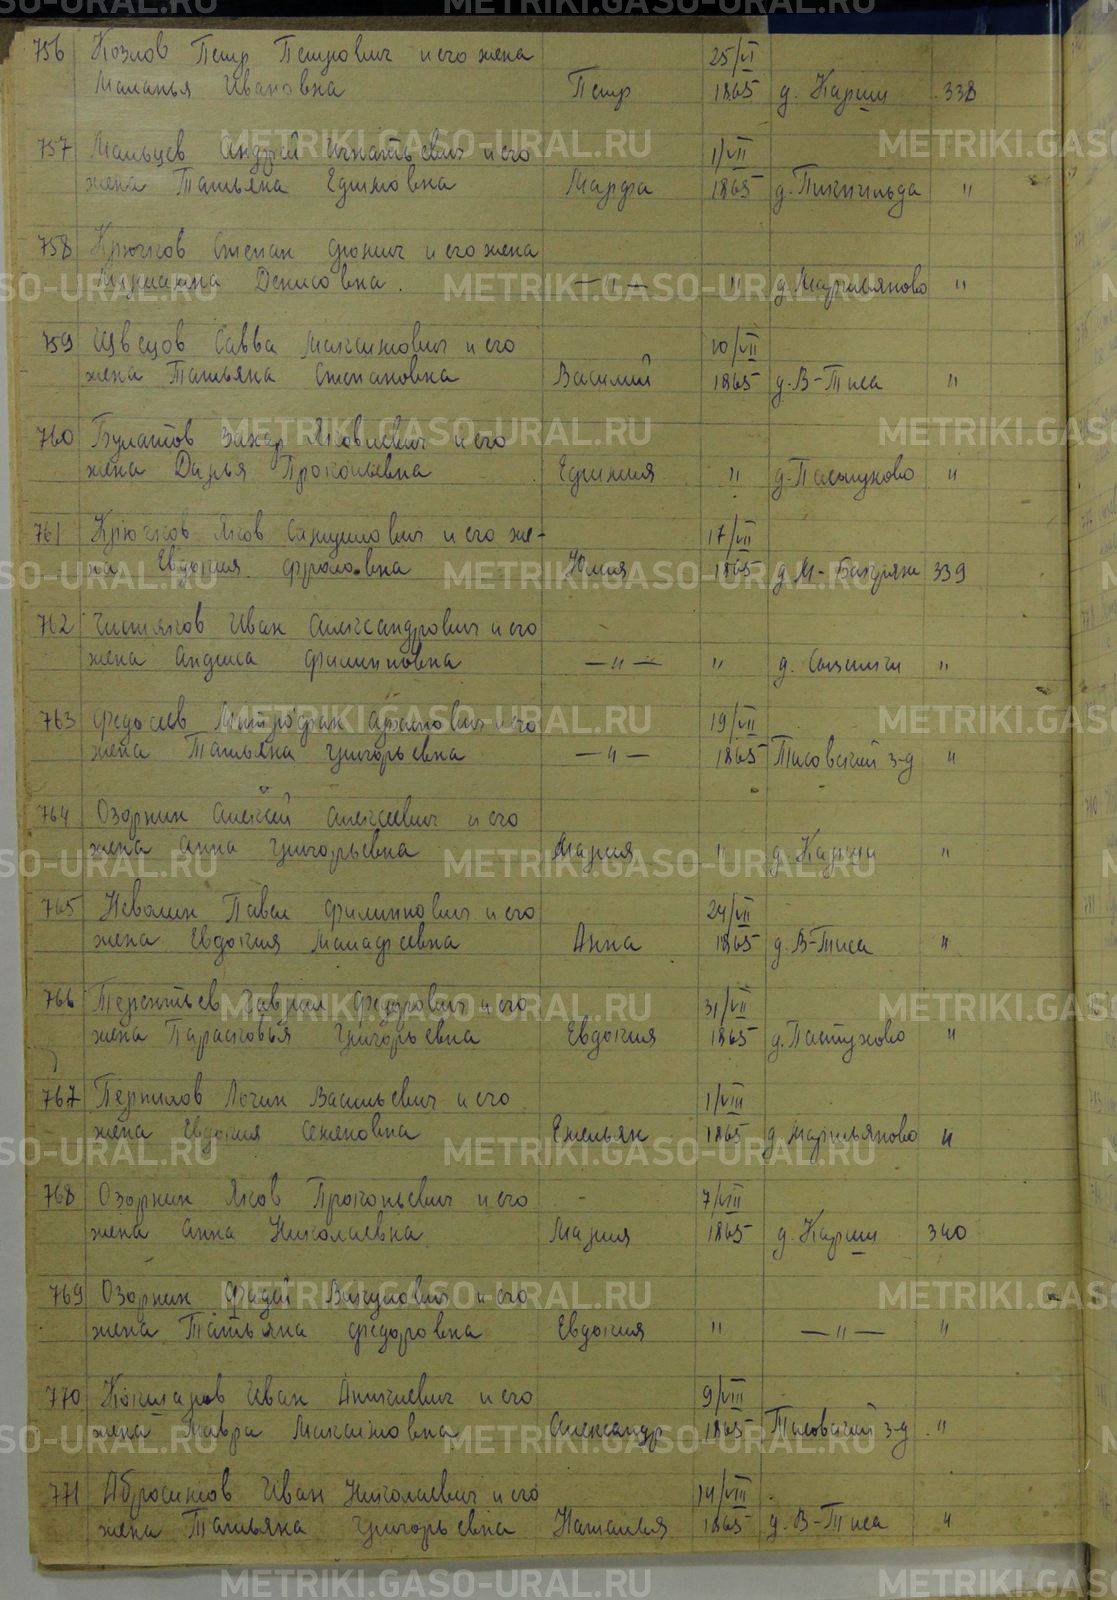 756 Козлов Петр Петрович и его жена 25/VI
Маланья Ивановна Петр 1865 д. Карши 338
757 Мальцев Андрей Игнатьевич и его 1/VII
жена Татьяна Ефимовна Марфа 1865 д. "
758 Крючков Степан и его жена
Марианна Денисовна. —"— " д. Маркияново "
759 Швецов Савва Максимович и его 10/VII
жена Татьяна Степановна Василий 1865 д. В-Тиса "
760 Булатов Захар Яковлевич и его
жена Дарья Прокопьевна Ефимия " д. "
761 Крючков Яков Самуилович и его же- 17/VII
на Евдокия Фроловна Юлия 1865 д. М-Бакряж 339
762 Чистяков Иван Александрович и его
жена Анфиса Филипповна —"— " д. "
763 Федосеев Митрофан и его 19/VII
жена Татьяна Григорьевна —"— 1865 Тисовский з-д "
764 Озорнин Алексей Алексеевич и его
жена Анна Григорьевна Мария " д. Карши "
765 Неволин Павел Филиппович и его 24/VII
жена Евдокия Малафеевна Анна 1865 д. В-Тиса "
766 Терентьев Гаврил Федорович и его 31/VII
жена Парасковья Григорьевна Евдокия 1865 д. Пастухово "
767 Пермилов Логин Васильевич и его 1/VIII
жена Евдокия Семеновна Емельян 1865 д. Маркияново "
768 Озорнин Яков Прокопьевич и его - 7/VIII
жена Анна Николаевна Мария 1865 д. Карши 340
769 Озорнин Фадей Викулович и его
жена Татьяна Федоровна Евдокия " —"— "
770 Кокшаров Иван Аникиевич и его 9/VIII
жена Мавра Максимовна Александр 1865 Тисовский з-д "
771 Абросимов Иван Николаевич и его 14/VIII
жена Татьяна Григорьевна Наталья 1865 д. В-Тиса "
METRIKI.GASO-URAL.RU